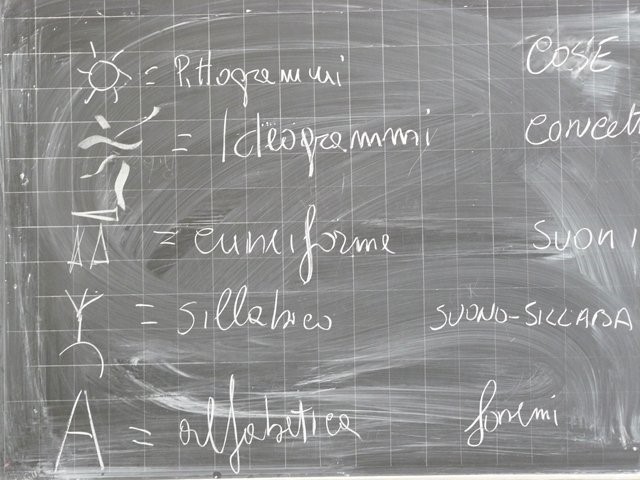 = Pittogrammi COSE
= Ideogrammi Concett
= cuneiforme SUONI
= sillabico SUONO-SILLABA
A = alfabetica fonemi